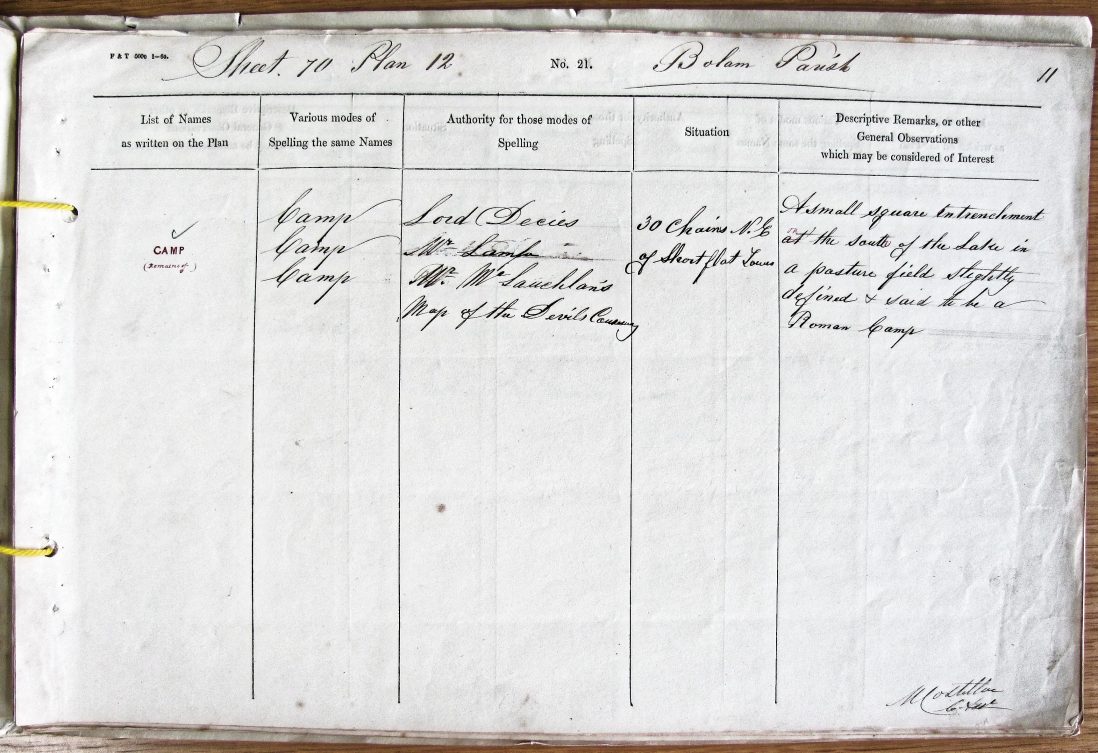 F & T 500c 1-60.
Sheet. 70 Plan 12
No. 21.
Bolam Parish
11
List of Names
as written on the Plan
Various modes of
Spelling the same Names
Authority for those modes of
Spelling
Situation
Descriptive Remarks, or other
General Observations
which may be considered of Interest
CAMP
(Remains of)
Camp
Camp
Camp
Lord Decies
Mr. Lamb
Mr. Mc Lauchlans
Map of the Devils Causeway
30 Chains N.E
of Shortflat Tower
A small square Entrenchment
at the south of the Lake in
a pasture field slightly
defined & said to be a
Roman Camp